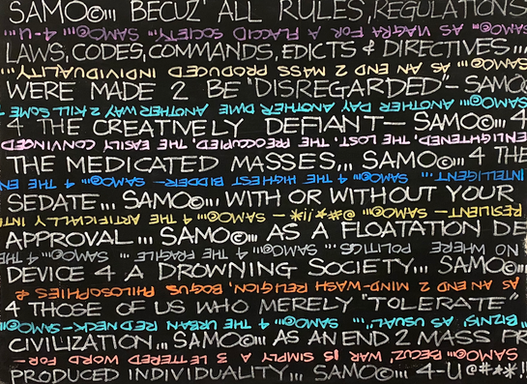 SAMO©... BECUZ ALL RULES, REGULATIONS
AS VIAGRA FOR A FLACCID SOCIETY... SAMO©... 4-U...
LAWS, CODES, COMMANDS, EDICTS & DIRECTIVES...
SAMO©... AS AN END 2 MASS PRODUCED INDIVIDUALITY...
WERE MADE 2 BE "DISREGARDED"– SAMO©
ANOTHER DAY ANOTHER DIME ANOTHER WAY 2 KILL SOME
4 THE CREATIVELY DEFIANT— SAMO©... 4
ENLIGHTENED, THE LOST, THE PREOCCUPIED, THE EASILY CONVINCED
THE MEDICATED MASSES... SAMO©... 4 THE
INTELLIGENT... SAMO©... 4 THE HIGHEST BIDDER– SAMO©... 4 THE EN
SEDATE... SAMO©... WITH OR WITHOUT YOUR
RESILIENT— SAMO©... – SAMO©... 4 THE ARTIFICIALLY INT
APPROVAL... SAMO©... AS A FLOATATION DE
NO WHERE POLITICS SAMO©... 4 THE FRAGILE SAMO©... 4 THE
DEVICE 4 A DROWNING SOCIETY... SAMO©
AS AN END 2 MIND-WASH RELIGION, BOGUS PHILOSOPHIES &
4 THOSE OF US WHO MERELY "TOLERATE"
BIZNIS, "AS USUAL"... SAMO©... 4 THE URBAN RED NECK–SAMO©...
CIVILIZATION... SAMO©... AS AN END 2 MASS PR
SAMO©... BECUZ WAR IS SIMPLY A 3 LETTERED WORD FOR–
PRODUCED INDIVIDUALITY... SAMO©... 4-U @#*